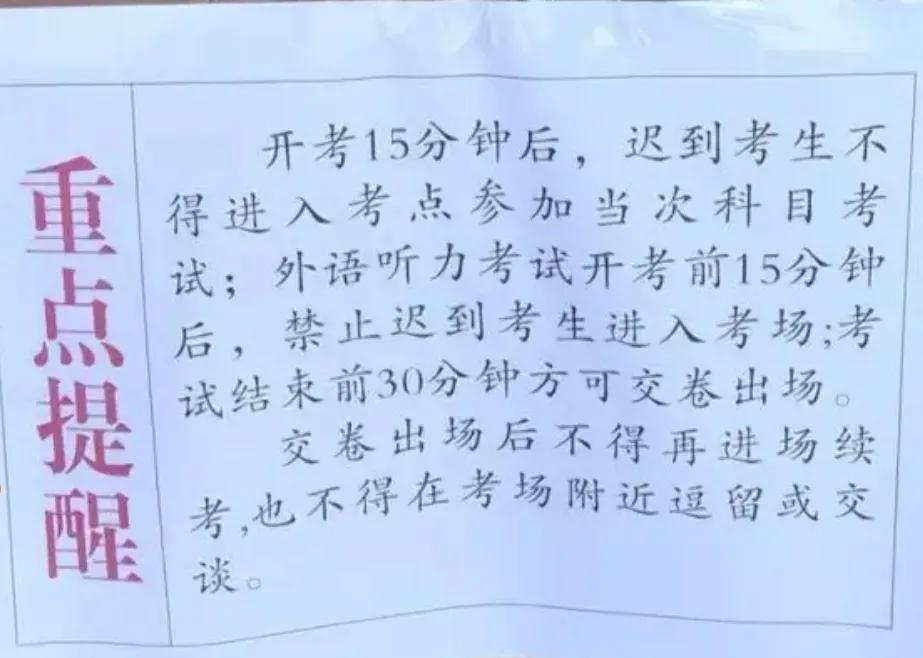 重点提醒
开考15分钟后，迟到考生不
得进入考点参加当次科目考
试；外语听力考试开考前15分钟
后，禁止迟到考生进入考场;考
试结束前30分钟方可交卷出场。
交卷出场后不得再进场续
考,也不得在考场附近逗留或交
谈。